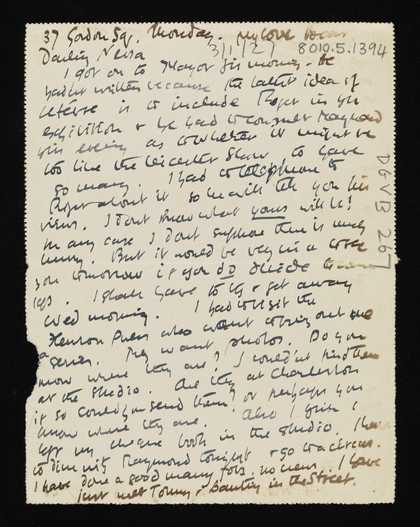 37 Gordon Sq. Monday. My love to
3/1/27 8010.5.1394
Darling Nessa
I got on to Mayor this morning. He
hadn't written because the latest idea of
Lefevre is to include Roger in the
exhibition & he had to consult Maynard
this evening as to whether it might be
too like the Leicester Show to have
so many. I had to telephone to
Roger about it so he will tell you his
views. I don't know what yours will be!
In any case I don't suppose there is much
hurry. But it would be very nice to see
you tomorrow if you do decide to
I shall have to try & get away
Wed morning. I had to visit the
Press who want to bring out
a series. They want photos. Do you
know where they are? I couldn't find them
at the studio. Are they at Charleston
if so could you send them? or perhaps you
know where they are. Also I think I
left my cheque book in the studio. I have
to dine with Raymond tonight & go to a circus.
I have done a good many jobs. No news. I have
just met Tommy & in the street.
DGVB 267